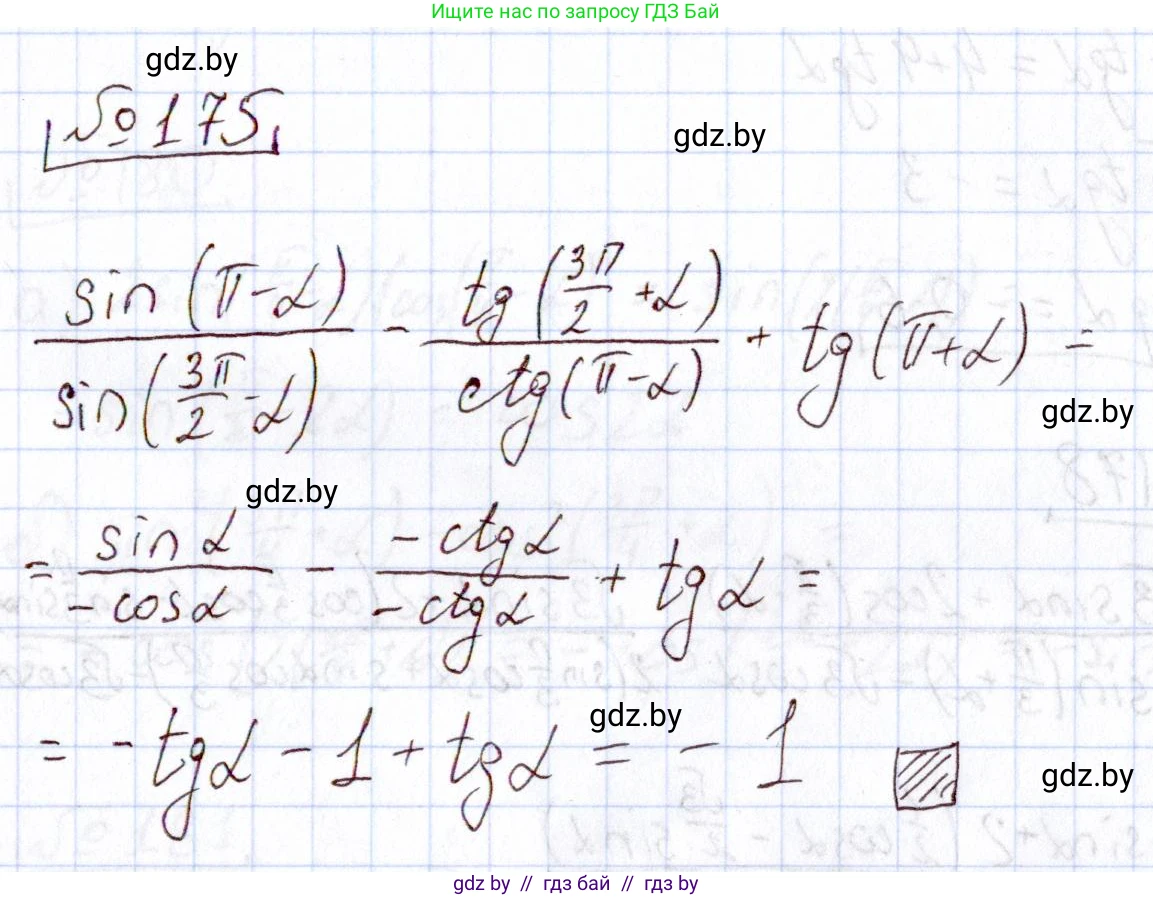 Ищите нас по запросу ГДЗ Бай
gdz.by
№ 175
gdz.by
sin(π-α)/sin(3π/2-α) - tg(3π/2+α)/ctg(π-α) + tg(π+α) =
gdz.by
gdz.by
= sinα/-cosα - -ctgα/-ctgα + tgα =
gdz.by
= -tgα - 1 + tgα = -1
gdz.by
gdz by // гдз бай // гдз by